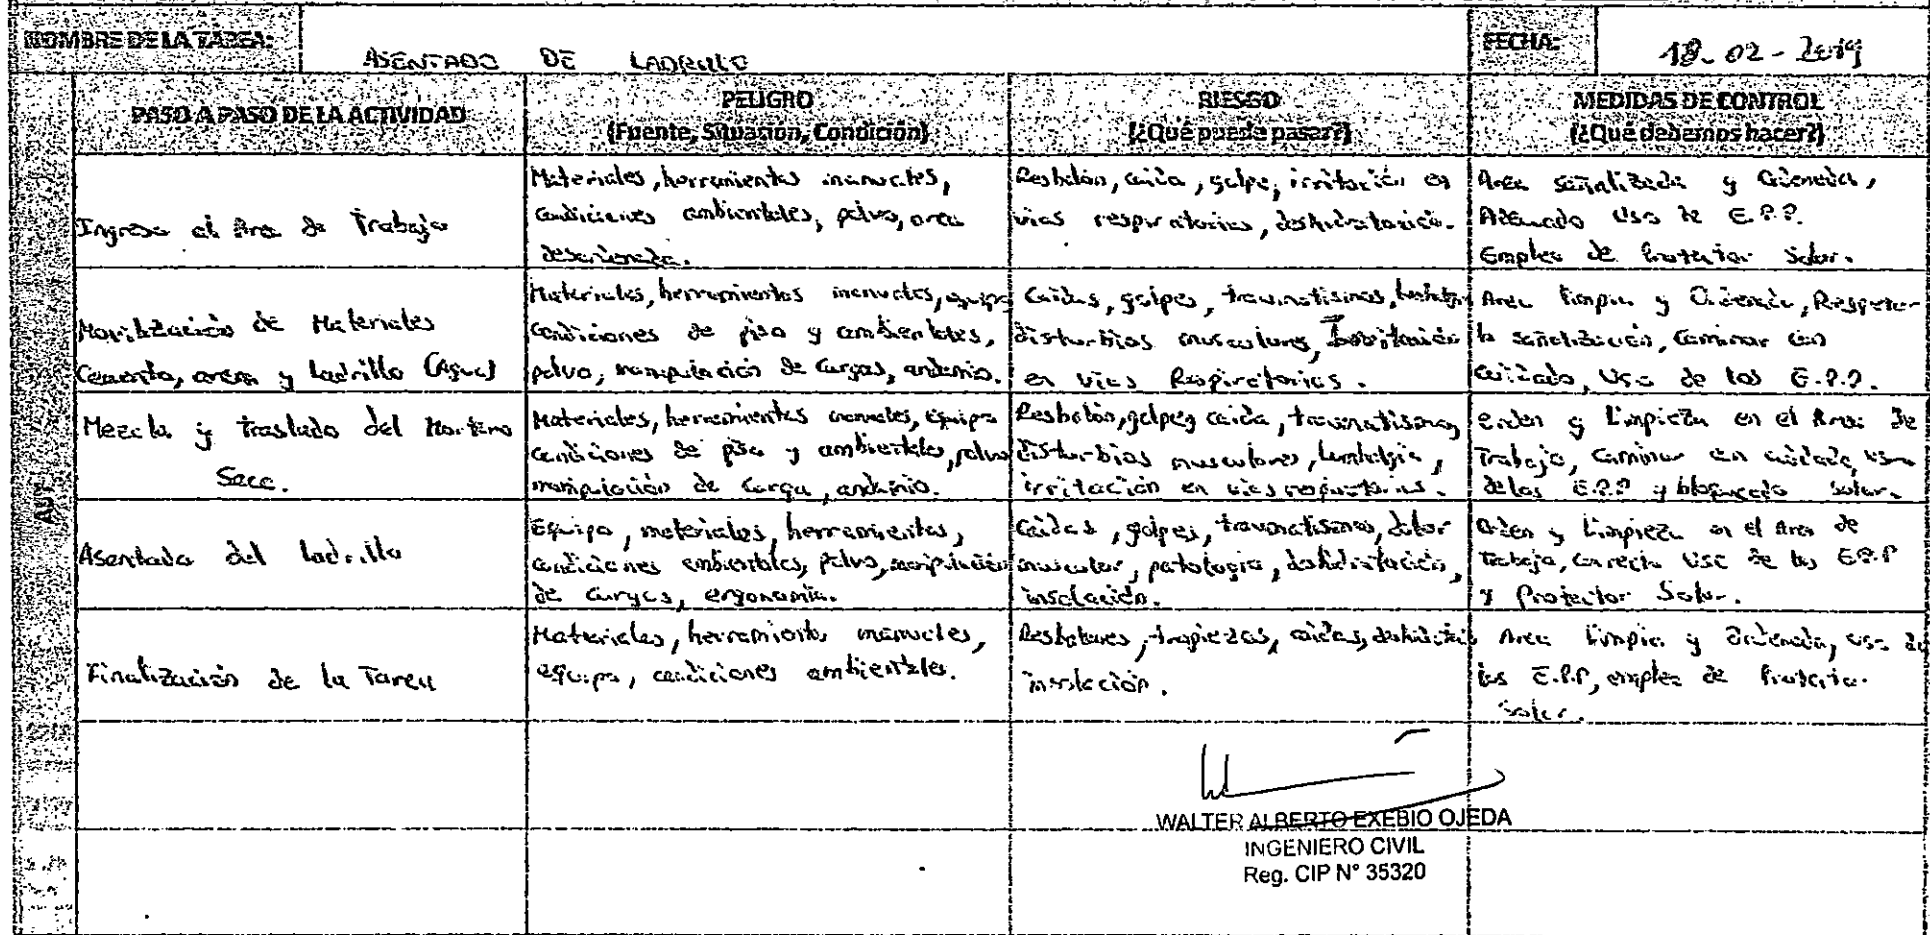 NOMBRE DE LA TAREA:
ASENTADO DE LADRILLO
FECHA:
18-02-2019
PASO A PASO DE LA ACTIVIDAD
PELIGRO
(Fuente, Situación, Condición)
RIESGO
(¿Qué puede pasar?)
MEDIDAS DE CONTROL
(¿Qué debemos hacer?)
Ingreso al Area de Trabajo
Materiales, herramientas manuales,
condiciones ambientales, polvo, area
desordenada.
Resbalón, caida, golpe, irritación en
vias respiratorias, deshidratación.
Area señalizada y Ordenada,
Adecuado Uso de E.P.P.
Empleo de Protector Solar.
Movilización de Materiales
Cemento, arena y ladrillo (Agua)
Materiales, herramientas manuales, equipo
condiciones de piso y ambientales,
polvo, manipulación de Cargas, andamio.
Caidas, golpes, traumatismos, lumbalgia
disturbios musculares, Irritación
en vias Respiratorias.
Area limpia y Ordenada, Respetar
la señalización, Caminar con
Cuidado, Uso de los E.P.P.
Mezcla y traslado del Mortero
Seco.
Materiales, herramientas manuales, Equipo
condiciones de piso y ambientales, polvo
manipulación de Carga, andamio.
Resbalón, golpes, caida, traumatismo,
disturbios musculares, lumbalgia,
irritación en vias respiratorias.
orden y Limpieza en el Area de
Trabajo, Caminar con cuidado, uso
de los E.P.P y bloqueado Solar.
Asentado del ladrillo
Equipo, materiales, herramientas,
condiciones ambientales, Polvo, manipulación
de Cargas, ergonomia.
Caidas, golpes, traumatismo, dolor
muscular, patologia, deshidratación,
insolación.
Orden y Limpieza en el Area de
Trabajo, Correcto Uso de los E.P.P
y Protector Solar.
Finalización de la Tarea
Materiales, herramienta manuales,
equipo, condiciones ambientales.
Resbalones, tropiezos, caidas,
insolación.
Area limpia y Ordenada, uso de
los E.P.P, empleo de Protector
Solar.
WALTER ALBERTO EXEBIO OJEDA
INGENIERO CIVIL
Reg. CIP N° 35320